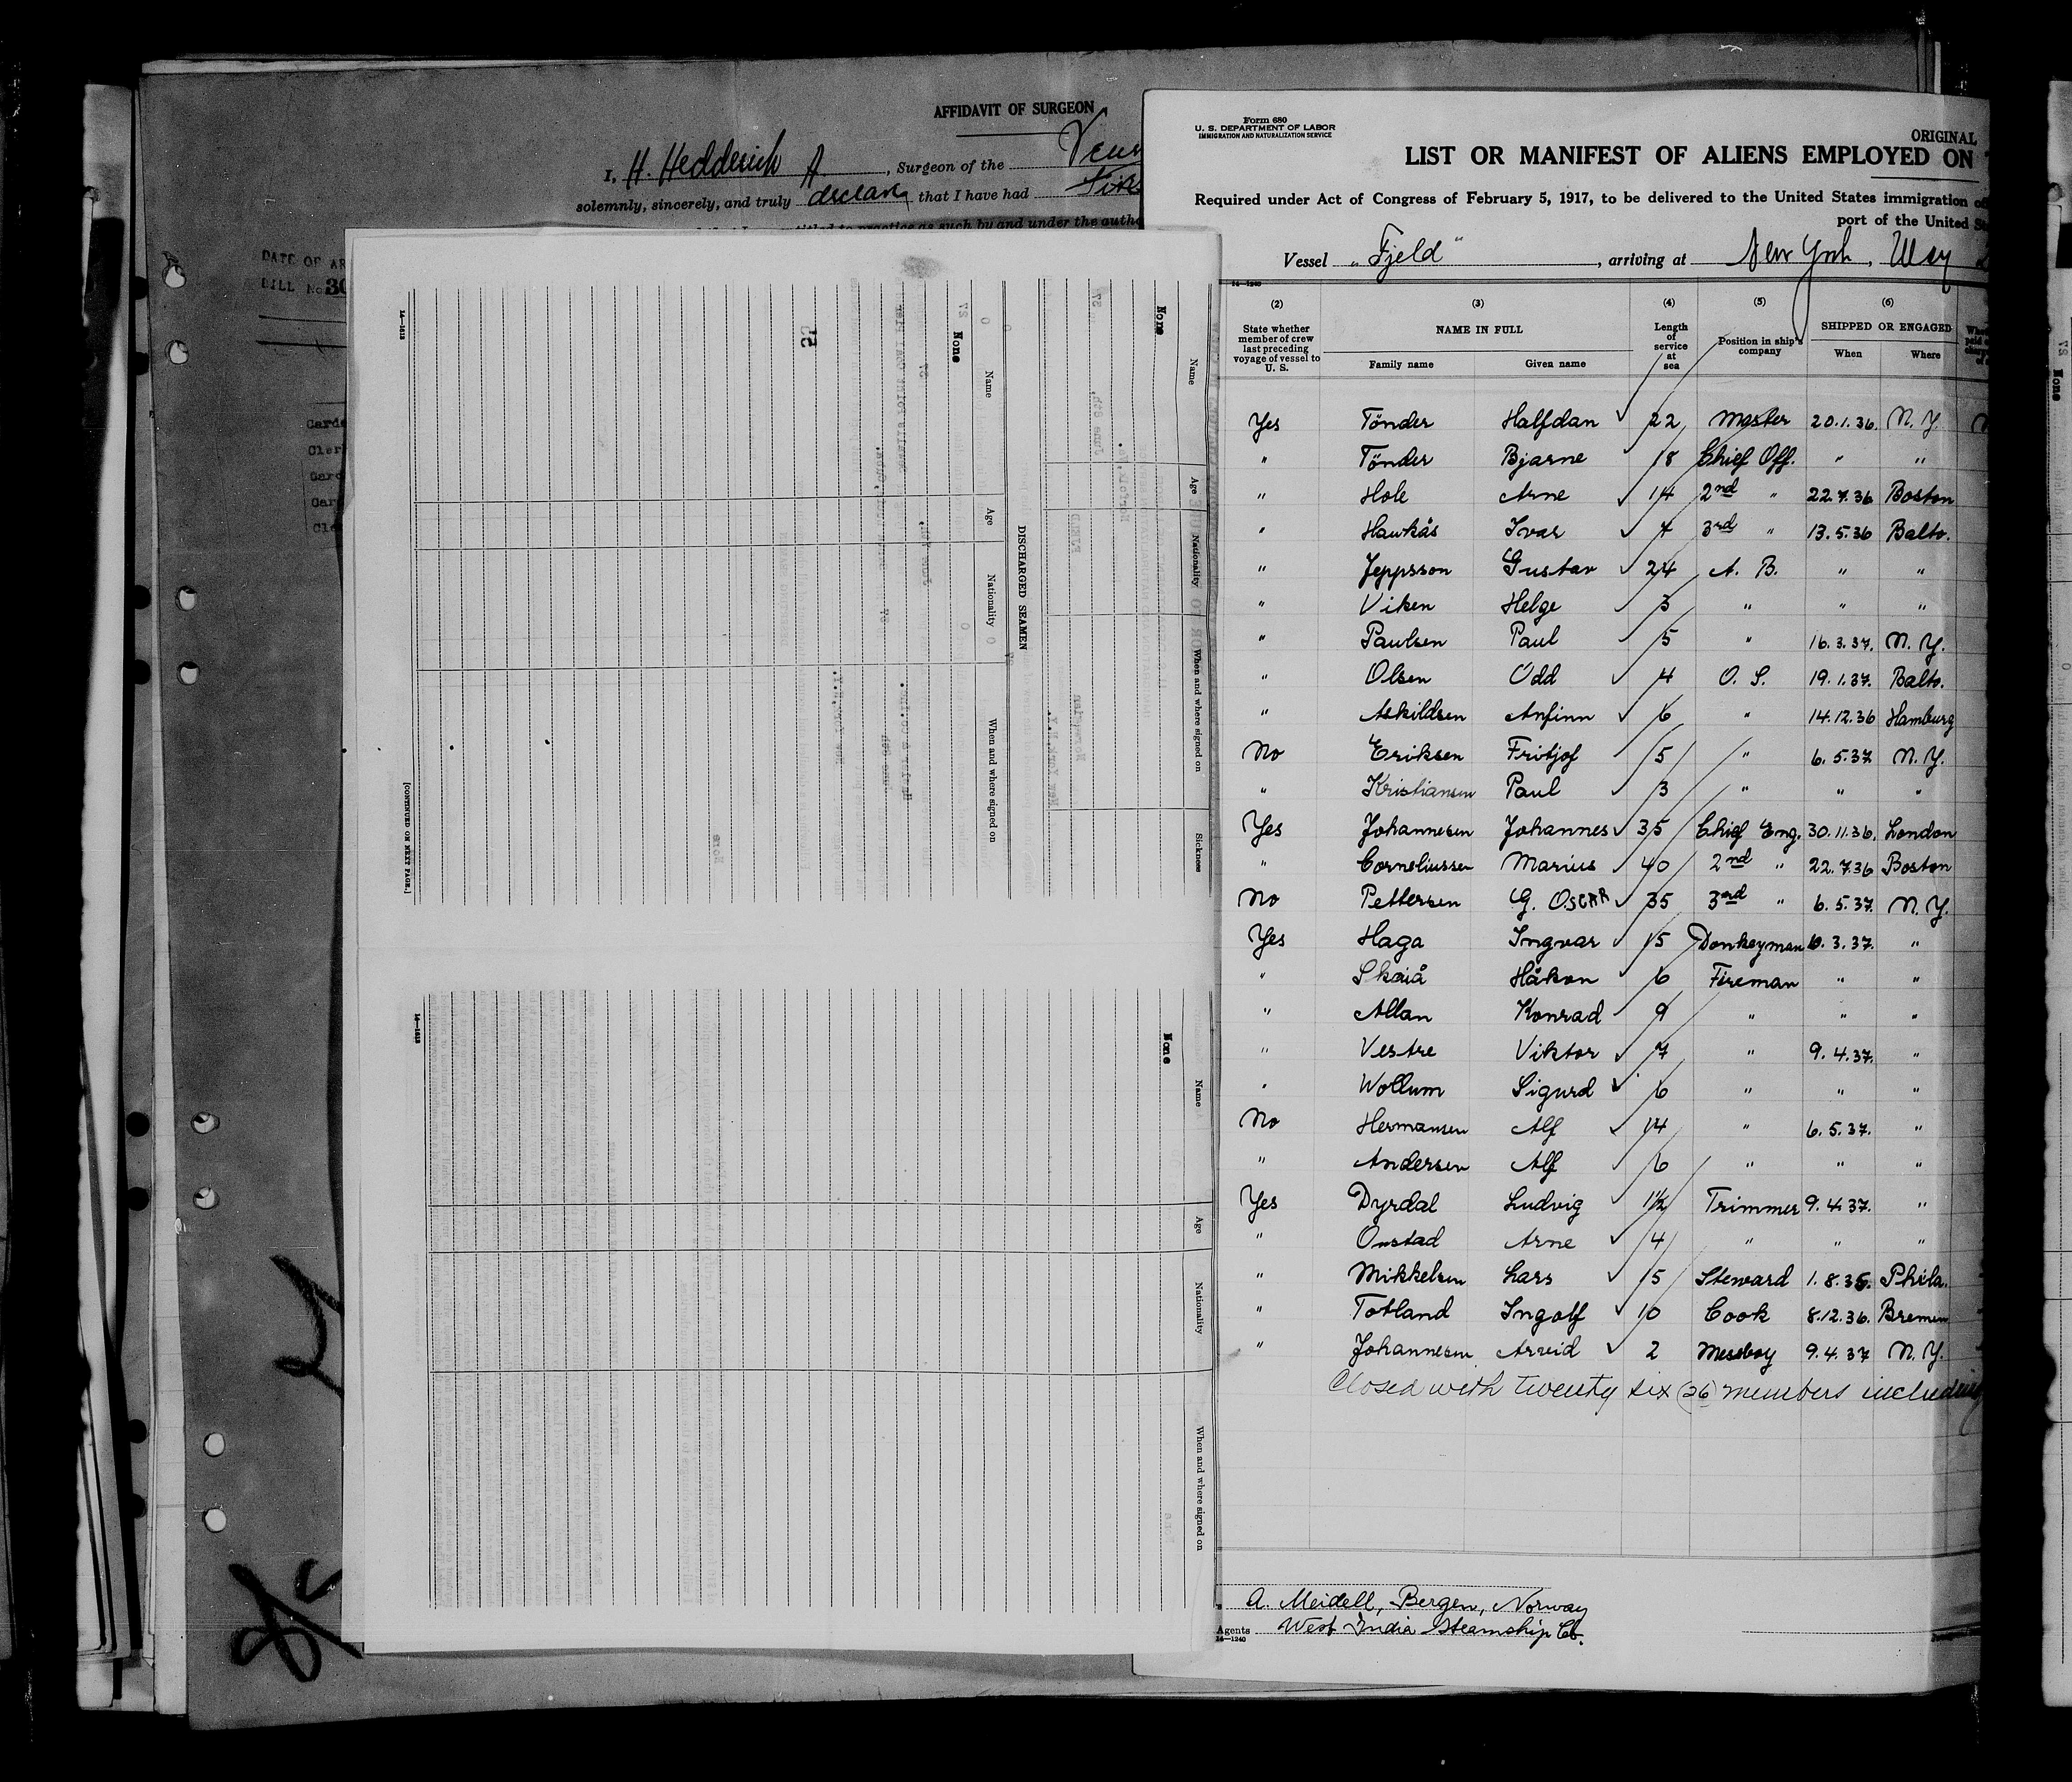 AFFIDAVIT OF SURGEON
I, H. Hedderich A., Surgeon of the
solemnly, sincerely, and truly declare that I have had
entitled to practice as such by and under the
DATE OF
BILL No.
Form 680
U. S. DEPARTMENT OF LABOR
IMMIGRATION AND NATURALIZATION SERVICE
ORIGINAL
LIST OR MANIFEST OF ALIENS EMPLOYED ON
Required under Act of Congress of February 5, 1917, to be delivered to the United States immigration
port of the United
Vessel "Fjeld", arriving at New York, May
14—1240
(2) (3) (4) (5) (6)
State whether member of crew last preceding voyage of vessel to U. S.
NAME IN FULL
Family name Given name
Length of service at sea
Position in ship's company
SHIPPED OR ENGAGED
When Where
Yes Tönder Halfdan 22 Master 20.1.36. N.Y.
" Tönder Bjarne 18 Chief Off. " "
" Hole Arne 14 2nd " 22.7.36 Boston
" Haukås Ivar 4 3rd " 13.5.36 Balto.
" Jeppsson Gustav 24 A. B. " "
" Viken Helge 3 " " "
" Paulsen Paul 5 " 16.3.37. N.Y.
" Olsen Odd 4 O. S. 19.1.37. Balto.
" Askildsen Anfinn 6 " 14.12.36 Hamburg
No Eriksen Fritjof 5 " 6.5.37 N.Y.
" Kristiansen Paul 3 " " "
Yes Johannesen Johannes 35 Chief Eng. 30.11.36. London
" Corneliussen Marius 40 2nd " 22.7.36 Boston
No Pettersen G. Oscar 35 3rd " 6.5.37. N.Y.
Yes Haga Ingvar 15 Donkeyman 10.3.37. "
" Skaiå Håkon 6 Fireman " "
" Allan Konrad 9 " " "
" Vestre Viktor 7 " 9.4.37. "
" Wollum Sigurd 6 " " "
No Hermansen Alf 14 " 6.5.37. "
" Andersen Alf 6 " " "
Yes Dyrdal Ludvig 1½ Trimmer 9.4.37. "
" Onstad Arne 4 " " "
" Mikkelsen Lars 15 Steward 1.8.36. Phila.
" Totland Ingolf 10 Cook 8.12.36. Bremen
" Johannesen Arvid 2 Messboy 9.4.37 N.Y.
Closed with twenty six (26) members including
A. Meidell, Bergen, Norway
Agents West India Steamship Co.
14—1240
Name Age Nationality When and where signed on Sickness
None
DISCHARGED SEAMEN
Name Age Nationality When and where signed on
None
[CONTINUED ON NEXT PAGE.]
Name Age Nationality When and where signed on
None